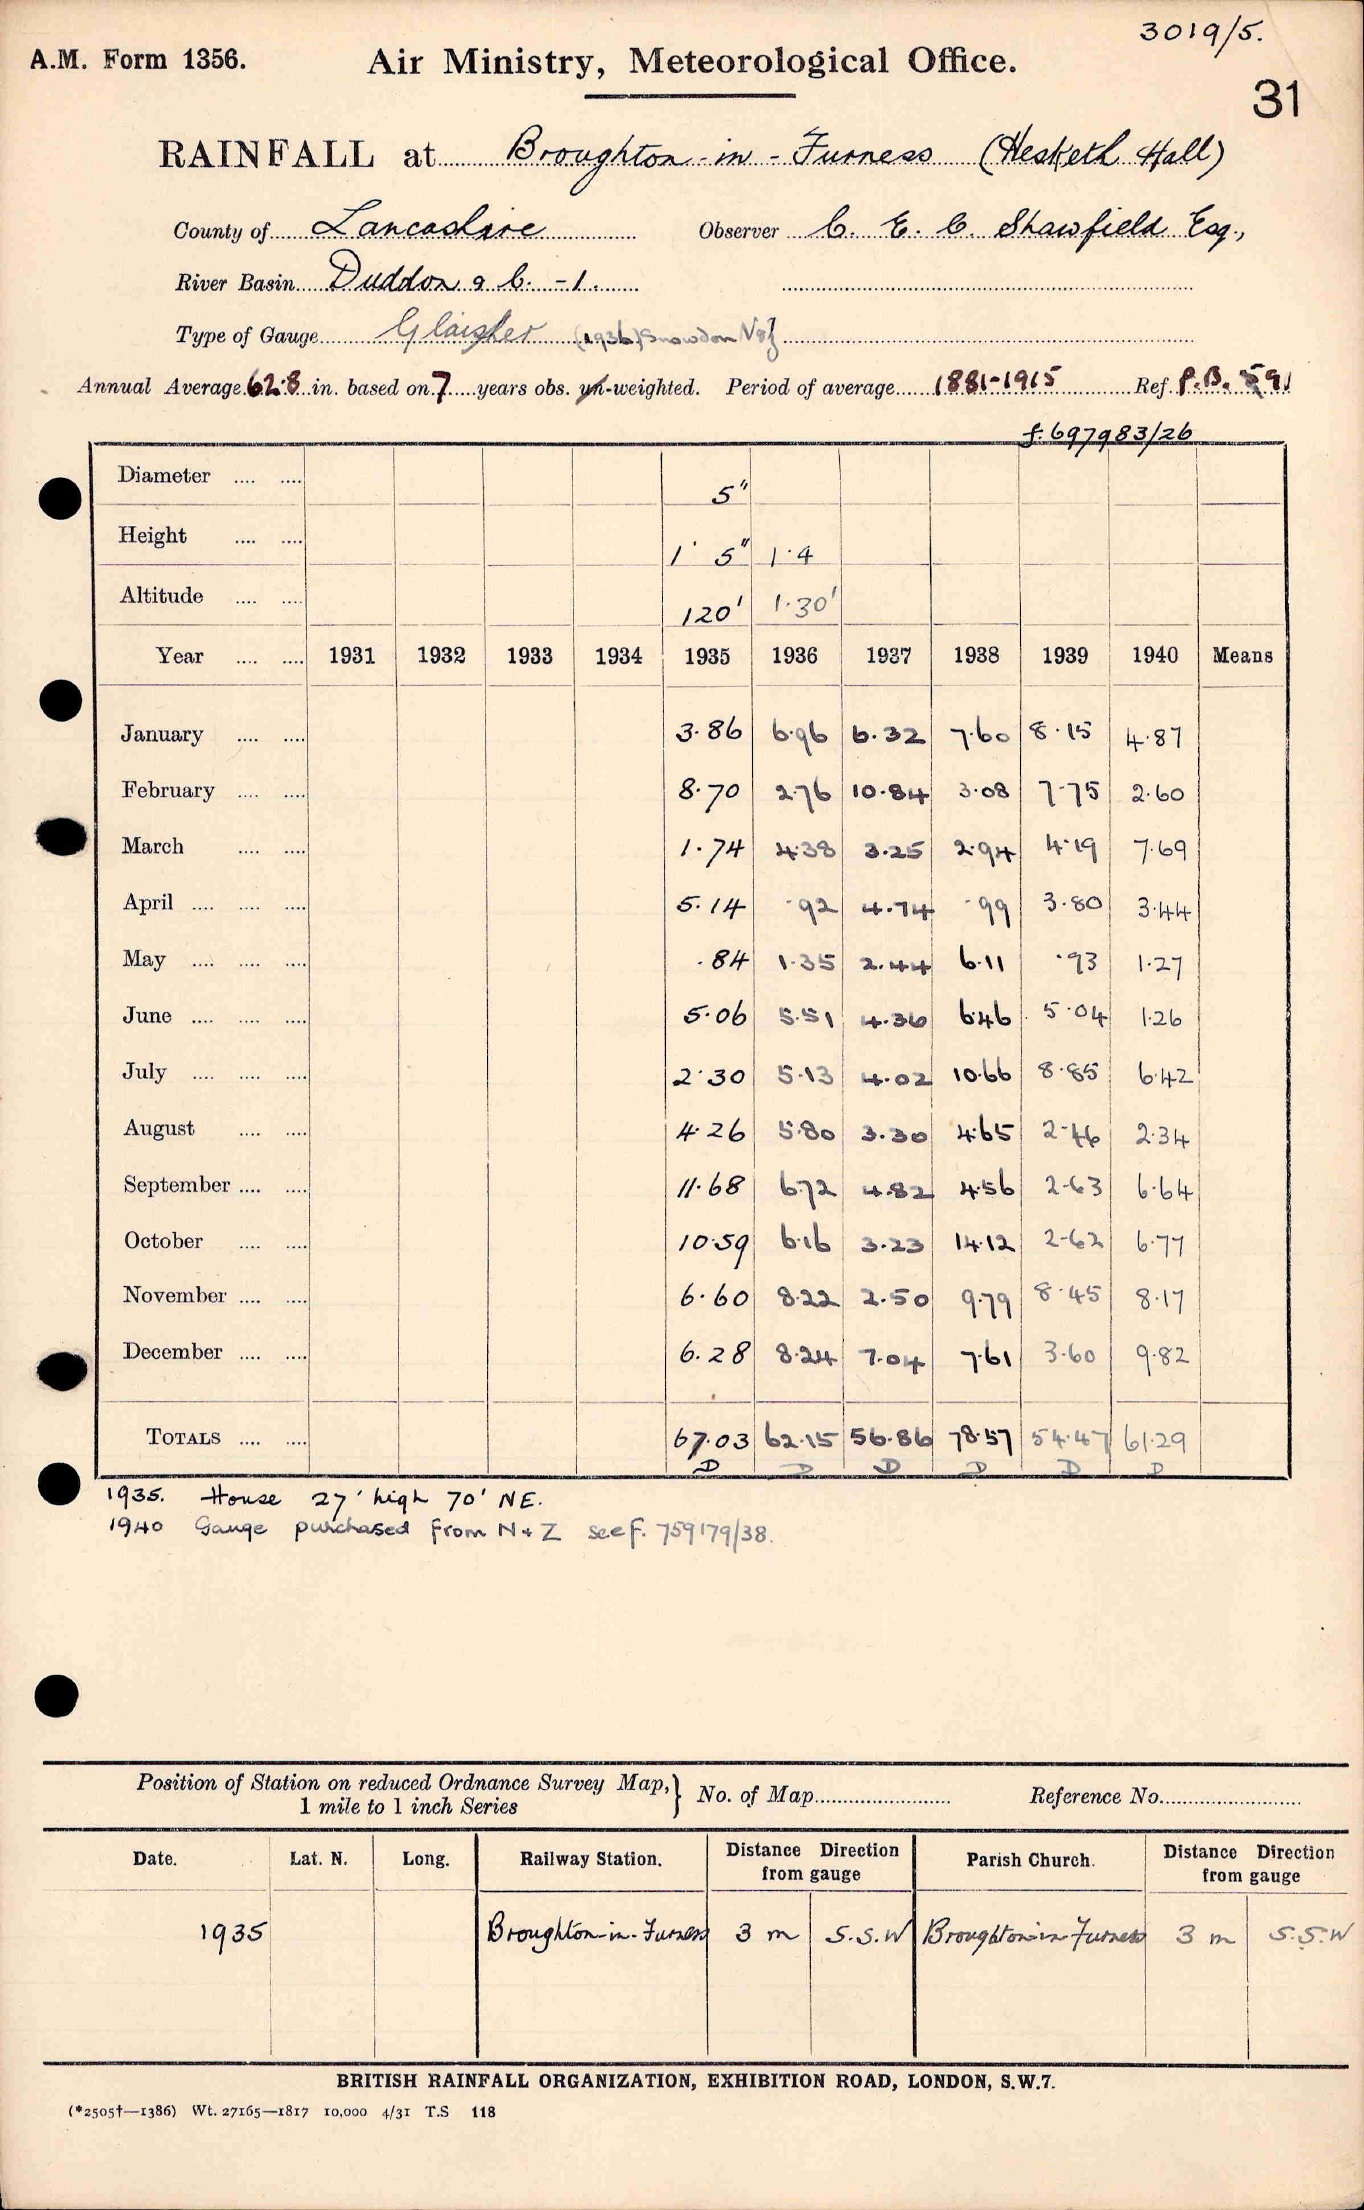 3019/5.
A.M. Form 1356. Air Ministry, Meteorological Office.
31
RAINFALL at Broughton-in-Furness (Hesketh Hall)
County of Lancashire Observer C. E. C. Shawfield Esq.,
River Basin Duddon a b. -1.
Type of Gauge Glaisher (1936) Snowdon N&Z
Annual Average 62.8 in. based on 7 years obs. un-weighted. Period of average 1881-1915 Ref. P.B. 591
f. 697983/26
Diameter .... .... 5"
Height .... .... 1' 5" 1.4
Altitude .... .... 120' 1.30'
Year .... .... 1931 1932 1933 1934 1935 1936 1937 1938 1939 1940 Means
January .... .... 3.86 6.96 6.32 7.60 8.15 4.87
February .... .... 8.70 2.76 10.84 3.08 7.75 2.60
March .... .... 1.74 4.38 3.25 2.94 4.19 7.69
April .... .... .... 5.14 .92 4.74 .99 3.80 3.44
May .... .... .... .84 1.35 2.44 6.11 .93 1.27
June .... .... .... 5.06 5.51 4.36 6.46 5.04 1.26
July .... .... .... 2.30 5.13 4.02 10.66 8.85 6.42
August .... .... 4.26 5.80 3.30 4.65 2.46 2.34
September .... .... 11.68 6.72 4.82 4.56 2.63 6.64
October .... .... 10.59 6.16 3.23 14.12 2.62 6.77
November .... .... 6.60 8.22 2.50 9.79 8.45 8.17
December .... .... 6.28 8.24 7.04 7.61 3.60 9.82
TOTALS .... .... 67.03 62.15 56.86 78.57 54.47 61.29
D D D D D D
1935. House 27' high 70' NE.
1940 Gauge purchased from N & Z see f. 759179/38.
Position of Station on reduced Ordnance Survey Map, } No. of Map Reference No.
1 mile to 1 inch Series
Date. Lat. N. Long. Railway Station. Distance Direction from gauge Parish Church. Distance Direction from gauge
1935 Broughton-in-Furness 3 m S.S.W Broughton-in-Furness 3 m S.S.W
BRITISH RAINFALL ORGANIZATION, EXHIBITION ROAD, LONDON, S.W.7.
(*2505†—1386) Wt. 27165—1817 10,000 4/31 T.S 118